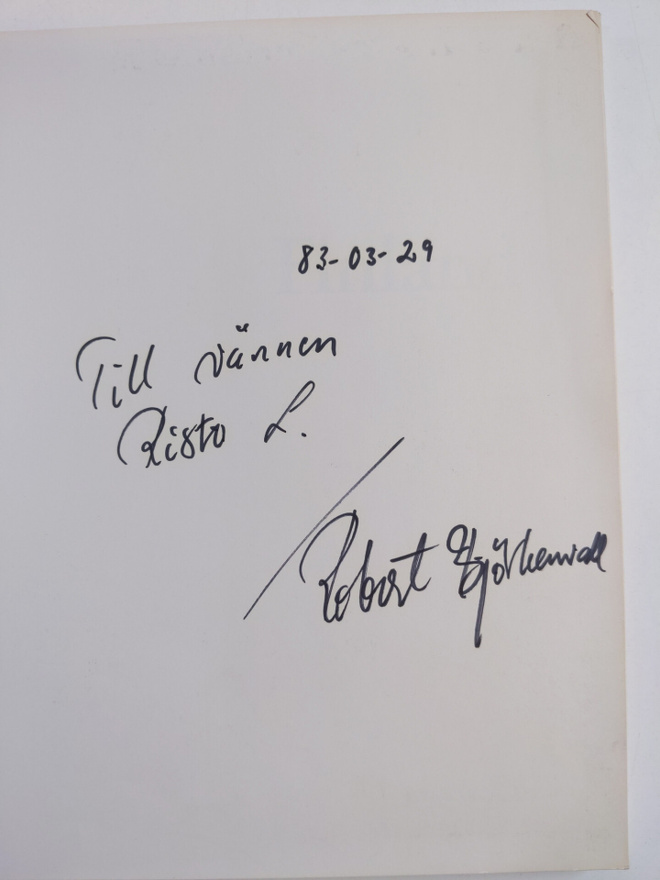 83-03-29
Till vännen
Risto L.
Robert Björkenwall